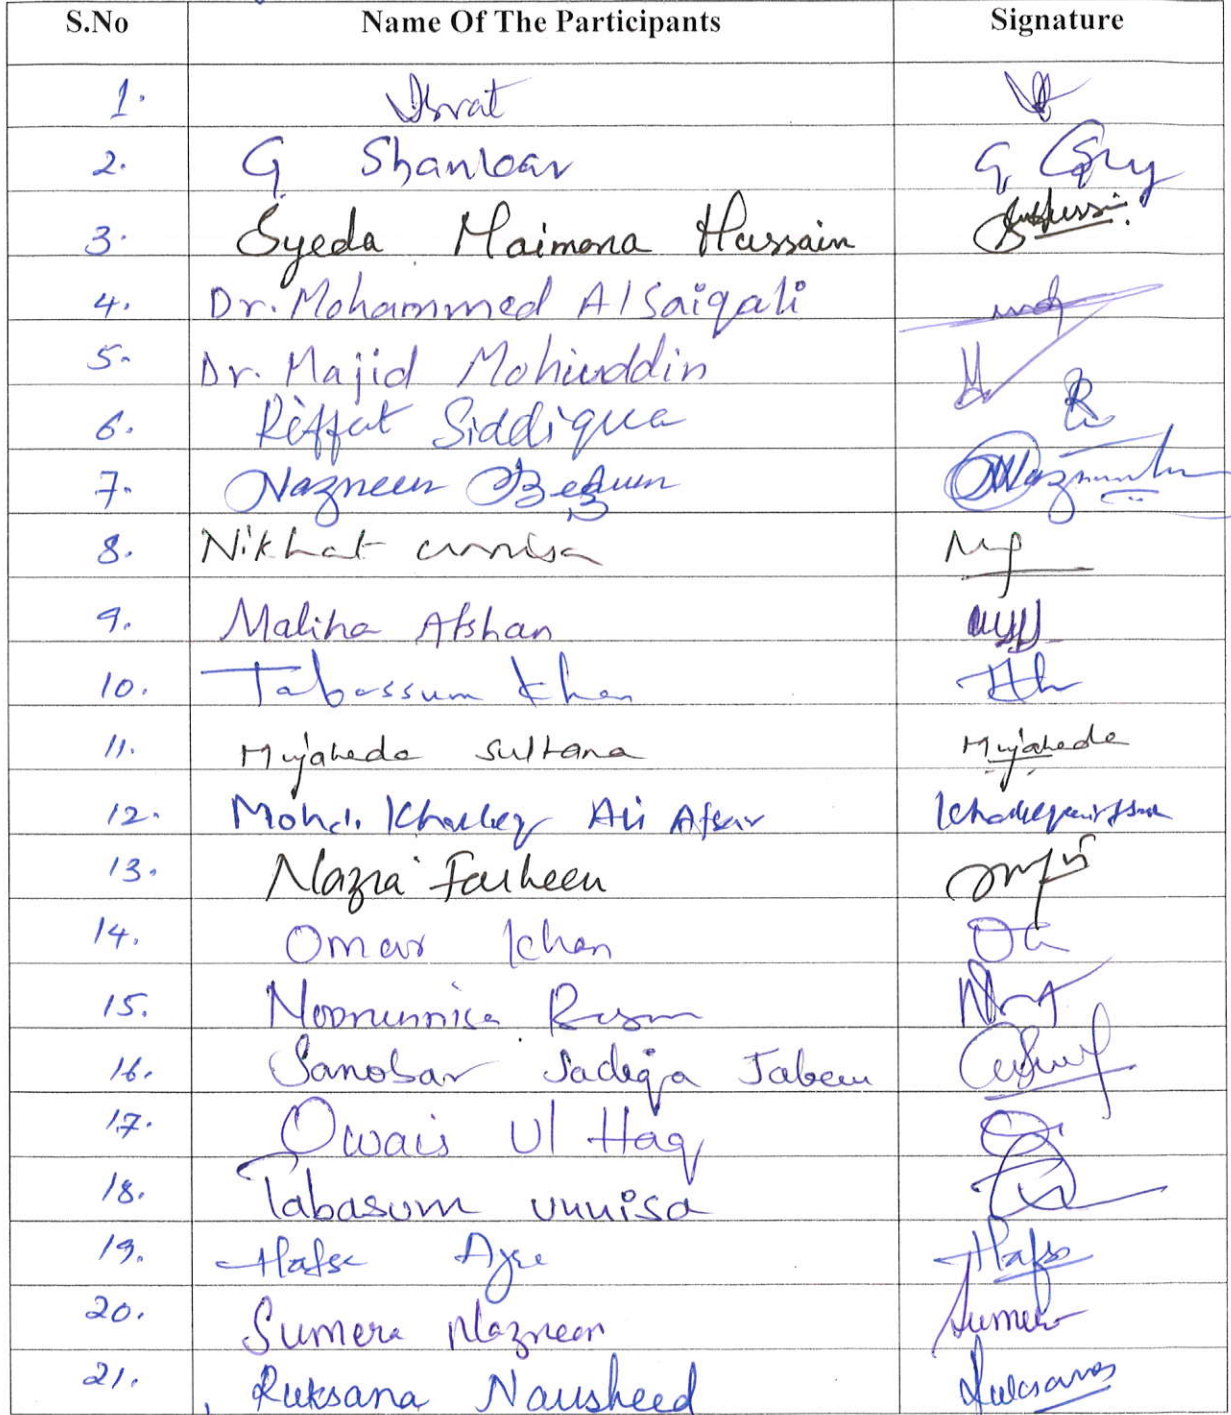 S.No Name Of The Participants Signature
1. Israt
2. G Shankar G
3. Syeda Maimona Hussain
4. Dr. Mohammed AlSaiqali
5. Dr. Majid Mohiuddin M
6. Riffat Siddiqua R
7. Nazneen Begum
8. Nikhat unnisa
9. Maliha Afshan
10. Tabassum Khan
11. Mujaheda Sultana Mujaheda
12. Mohd. Khaleeq Ali Afsar
13. Nazia Farheen
14. Omar Khan
15. Noorunnisa
16. Sanobar Sadiqa Jabeen
17. Owais Ul Haq
18. Tabasum unnisa
19. Hafsa Hafsa
20. Sumera Nazneen Sumera
21. Ruksana Nausheed Ruksana